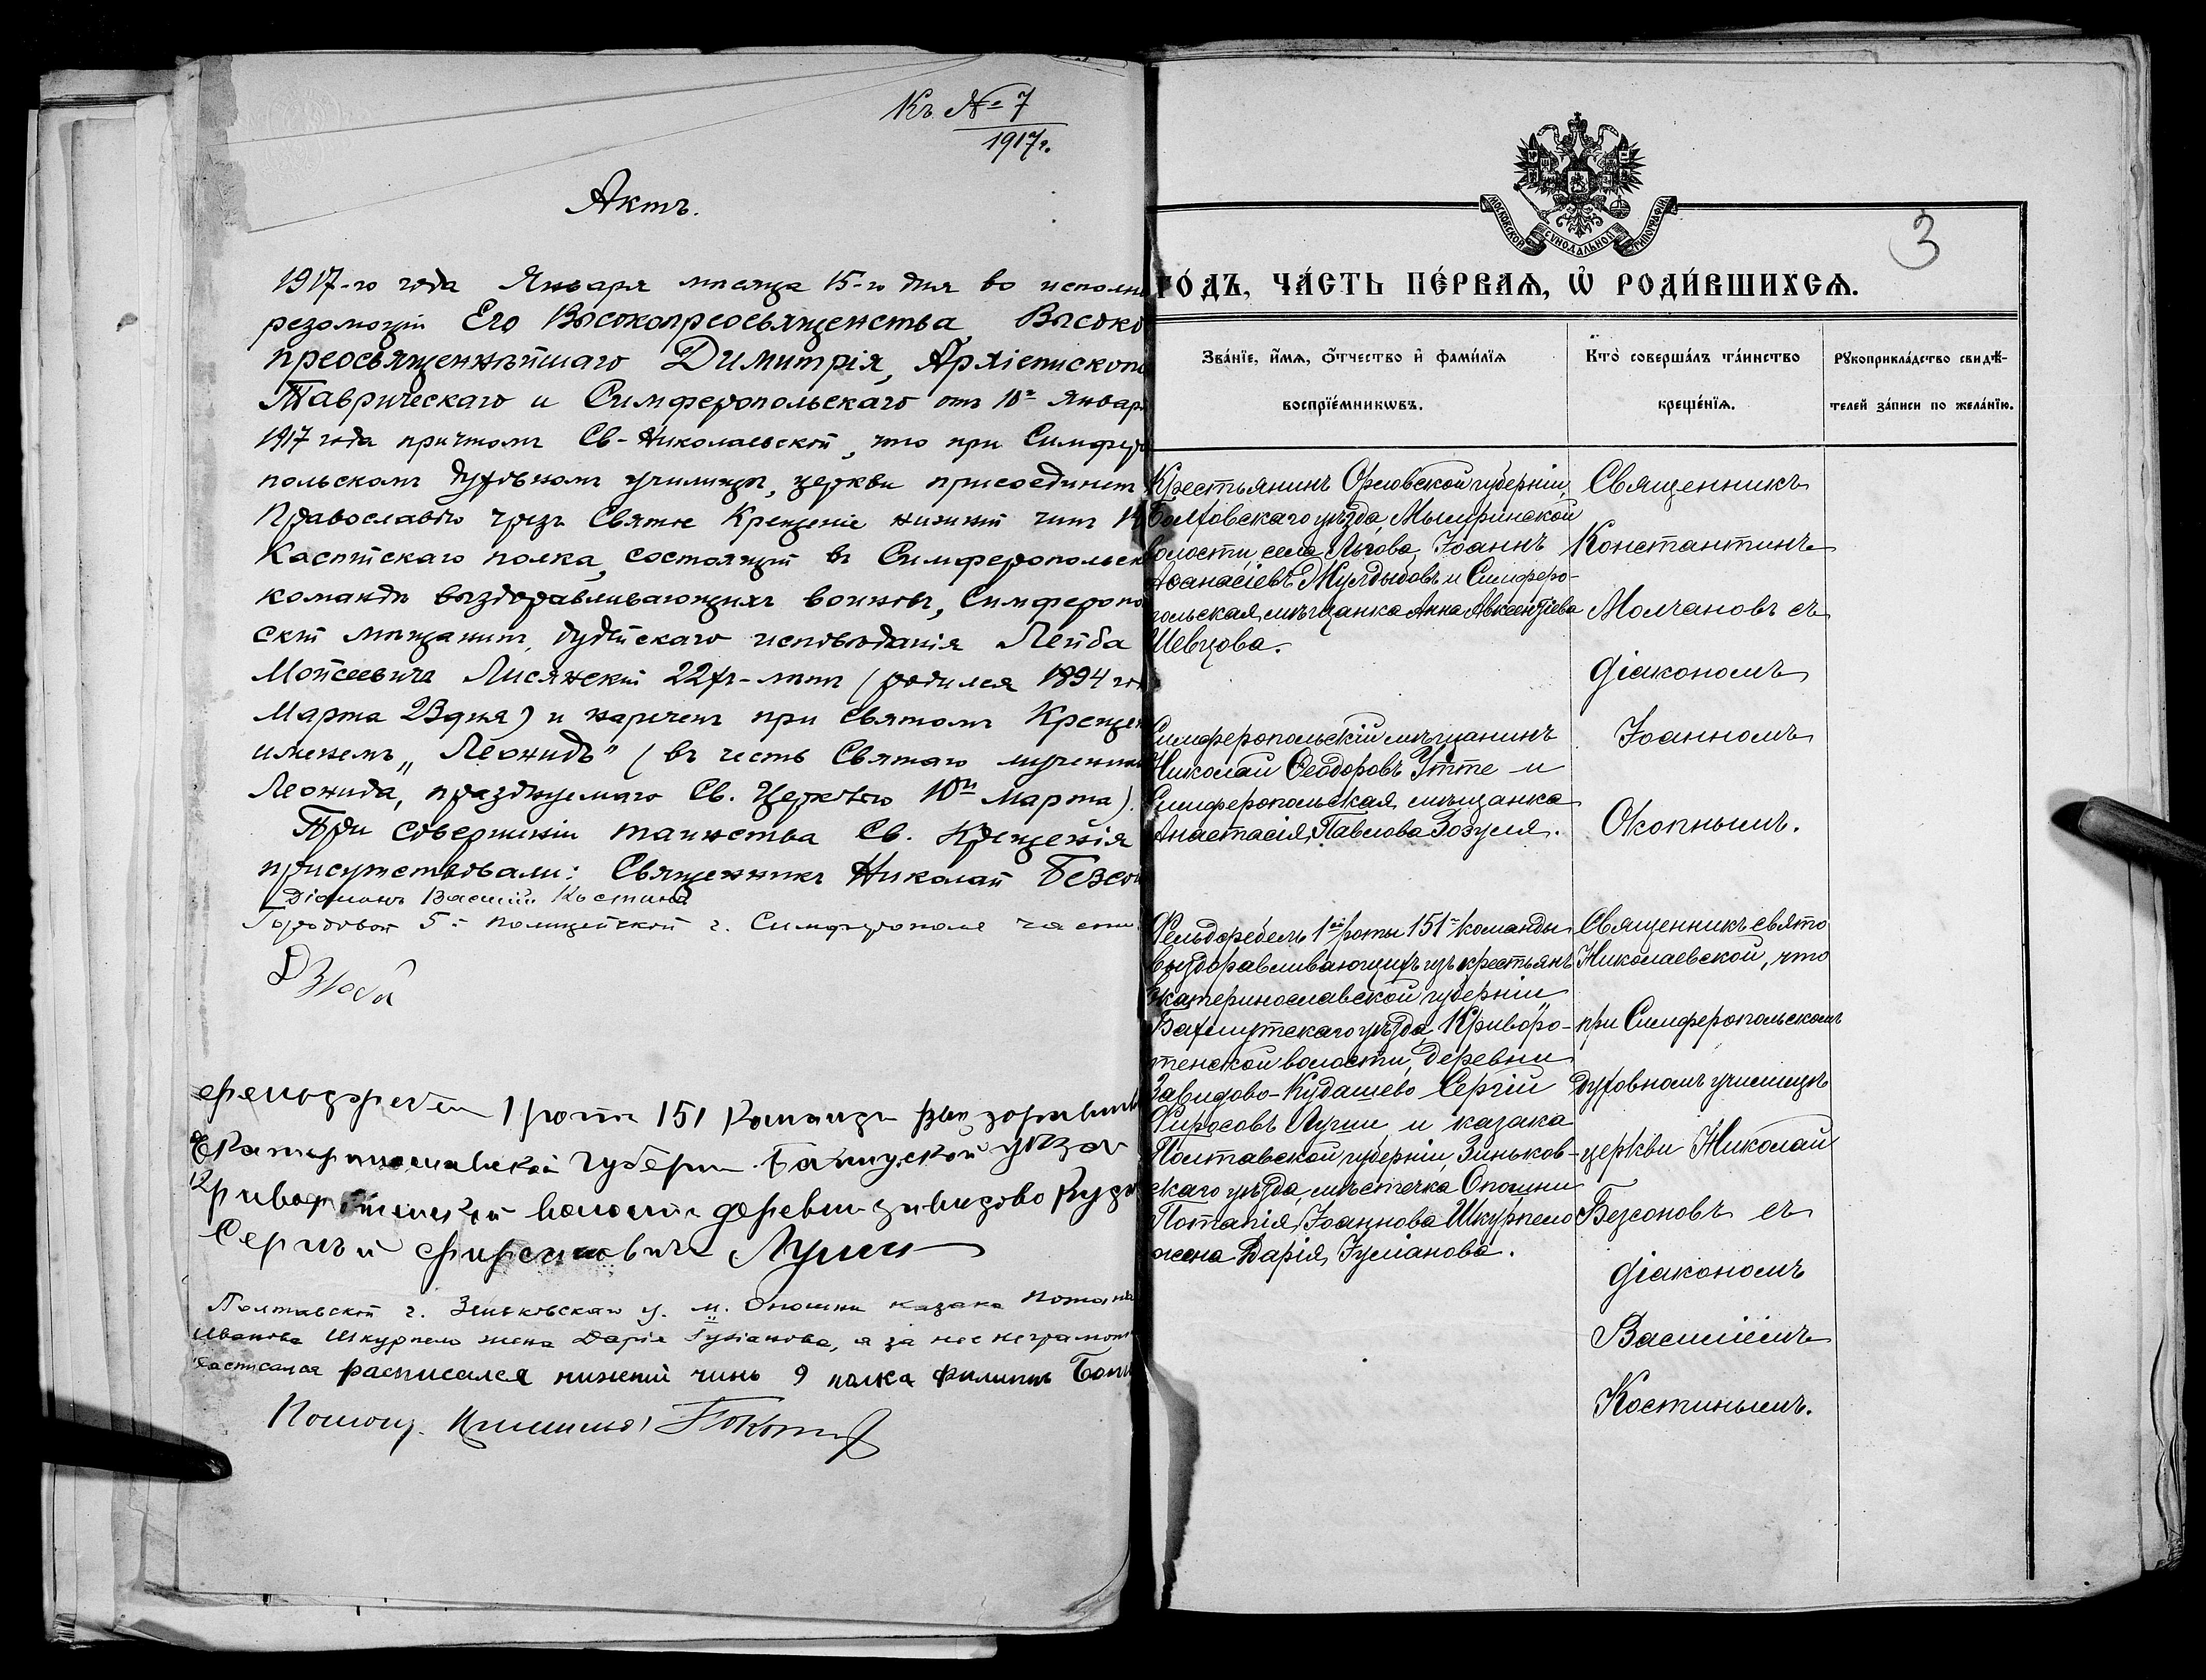 Къ № 7
1917 г.
Актъ.
1917-го года Января мѣсяца 15-го дня во исполн
резолюціи Его Высокопреосвященства Высоко
преосвященнѣйшаго Димитрія, Архіепископа
Таврическаго и Симферопольскаго отъ 10го Январ
1917 года причтомъ Св-Николаевской, что при Симферо
польскомъ духовномъ училищѣ, церкви присоединенъ
Православію чрезъ Святое Крещеніе нижній чинъ
Каспійскаго полка, состоящій въ Симферопольск
командѣ выздоравливающихъ воиновъ, Симферопо
скій мѣщанинъ, іудейскаго исповѣданія Лейба
Мойсеевичъ Лисянскій 22хъ-лѣтъ (родился 1894 го
Марта 23 дня) и нареченъ при Святомъ Креще
именемъ „Леонидъ" (въ честь Святаго мученик
Леонида, празднуемаго Св. Церковью 10го Марта).
При совершеніи таинства Св. Крещенія
присутствовали: Священникъ Николай Безсон
Діаконъ Василій Костинъ
Городовой 5-й полицейской г. Симферополя части
Дзюба
фельдфебель 1 роты 151 команды выздоравлив
Екатеринославской Губерни Бахмуской уезда
Криворотенской волости деревни завидово Куда
Сергѣй фирсовичъ Лунин
Полтавской г. Зеньковскаго у. м. Опошни казака Потапа
Иванова Шкурпело жена Дарія Іуліанова, а за нее неграмот
расписался расписался нижній чинъ 9 полка Филиппъ
Помощ.
3
МОСКОВСКОЙ СУНОДАЛЬНОЙ ТИПОГРАФІИ
ГО́ДЪ, ЧА́СТЬ ПЕ́РВАѦ, Ѡ҆ РОДИ́ВШИХСѦ.
Зва́нїе, и҆́мѧ, ѻ҆́тчество и҆ фами́лїѧ
воспрїе́мникѡвъ.
Кто̀ соверша́лъ та́инство
креще́нїѧ.
Рꙋкоприкла́дство свидѣ́-
телей за́писи по жела́нїю.
Крестьянинъ Орловской губерніи,
Болховскаго уѣзда, Мымринской
волости, села Льгова, Іоаннъ
Аѳанасіевъ Жулдыбовъ и Симферо-
польская мѣщанка Анна Авксентіева
Шевцова.
Священникъ
Константинъ
Молчановъ съ
діакономъ
Іоанномъ
Окопнымъ.
Симферопольскій мѣщанинъ
Николай Ѳеодоровъ Утте и
Симферопольская мѣщанка
Анастасія Павлова Зозуля.
Фельдфебель 1ой роты 151й команды
выздоравливающихъ изъ крестьянъ
Екатеринославской губерніи,
Бахмутскаго уѣзда, Криворо-
тенской волости, деревни
Завидово-Кудашево Сергій
Фирсовъ Лунин и казака
Полтавской губерніи, Зиньков-
скаго уѣзда, мѣстечка Опошни
Потапія Іоаннова Шкурпело
жена Дарія Іуліанова.
Священникъ свято
Николаевской, что
при Симферопольскомъ
духовномъ училищѣ
церкви Николай
Безсоновъ съ
діакономъ
Василіемъ
Костинымъ.